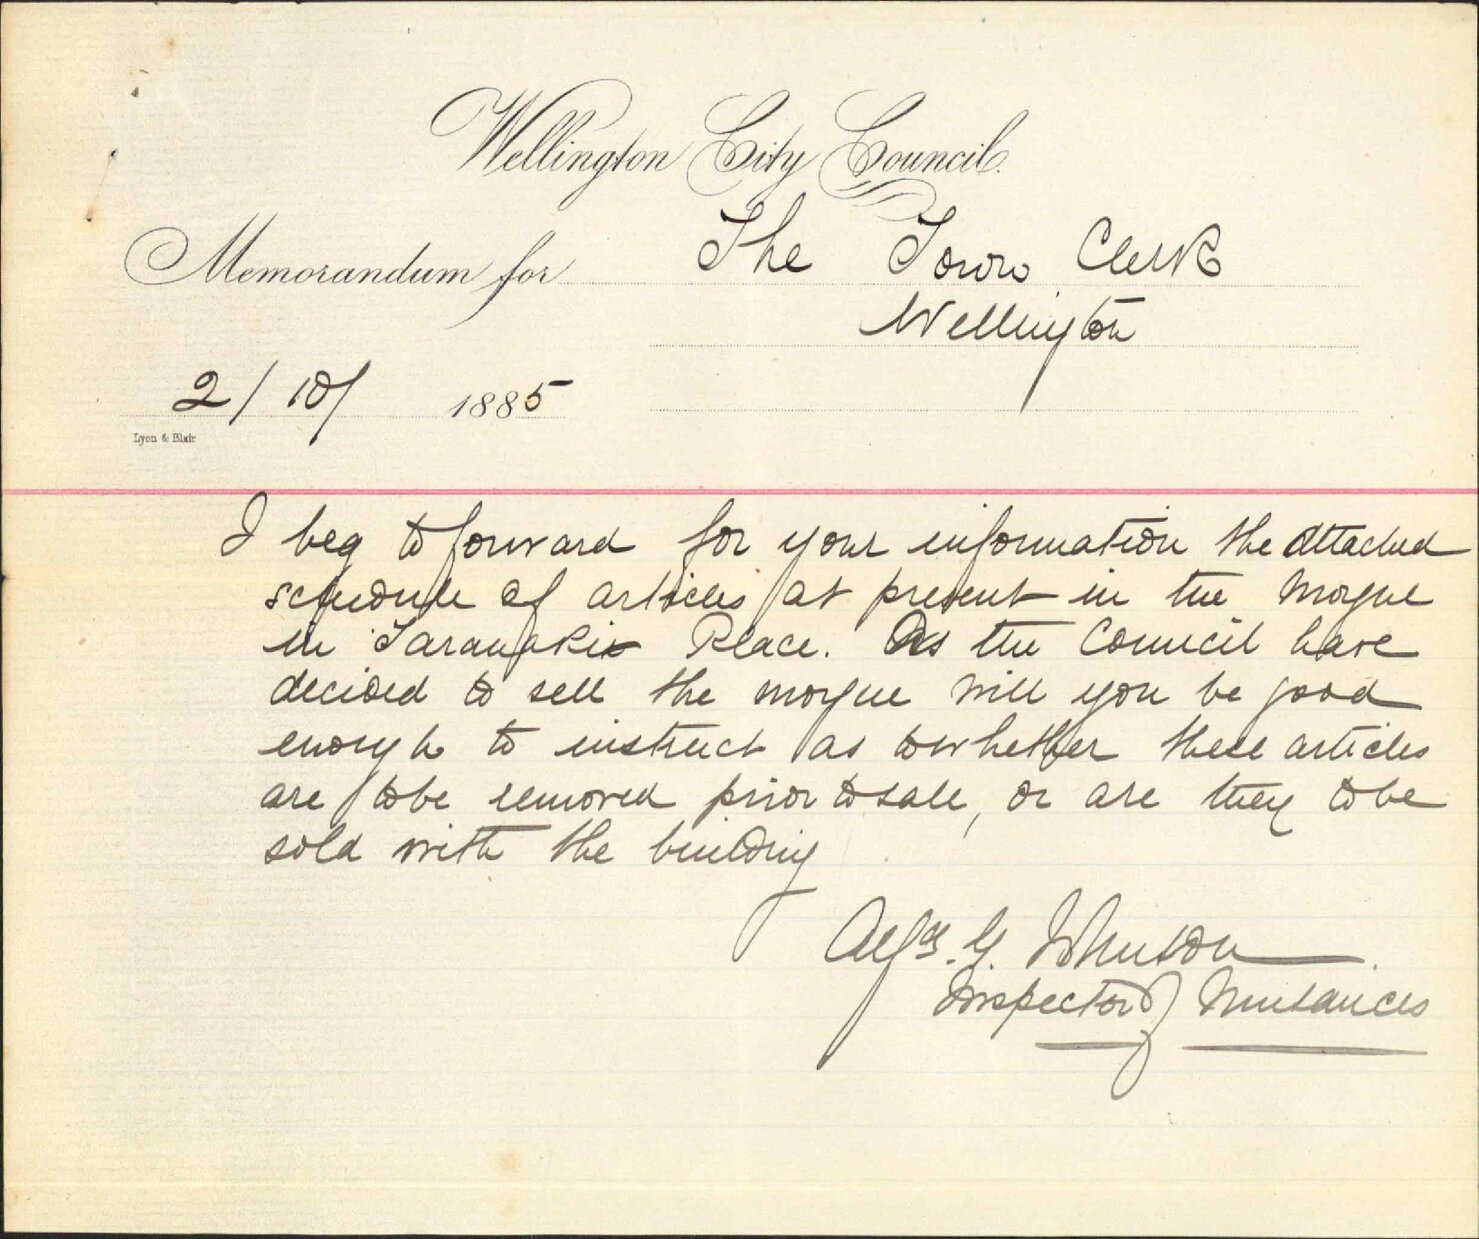 Wellington City Council.
Memorandum for The Town Clerk
Wellington
2/10/ 1885
Lyon & Blair
I beg to forward for your information the attached
schedule of articles at present in the Morgue
in Taranaki Place. As the Council have
decided to sell the morgue will you be good
enough to instruct as to whether these articles
are to be removed prior to sale, or are they to be
sold with the building
G. Johnson
Inspector of Nuisances